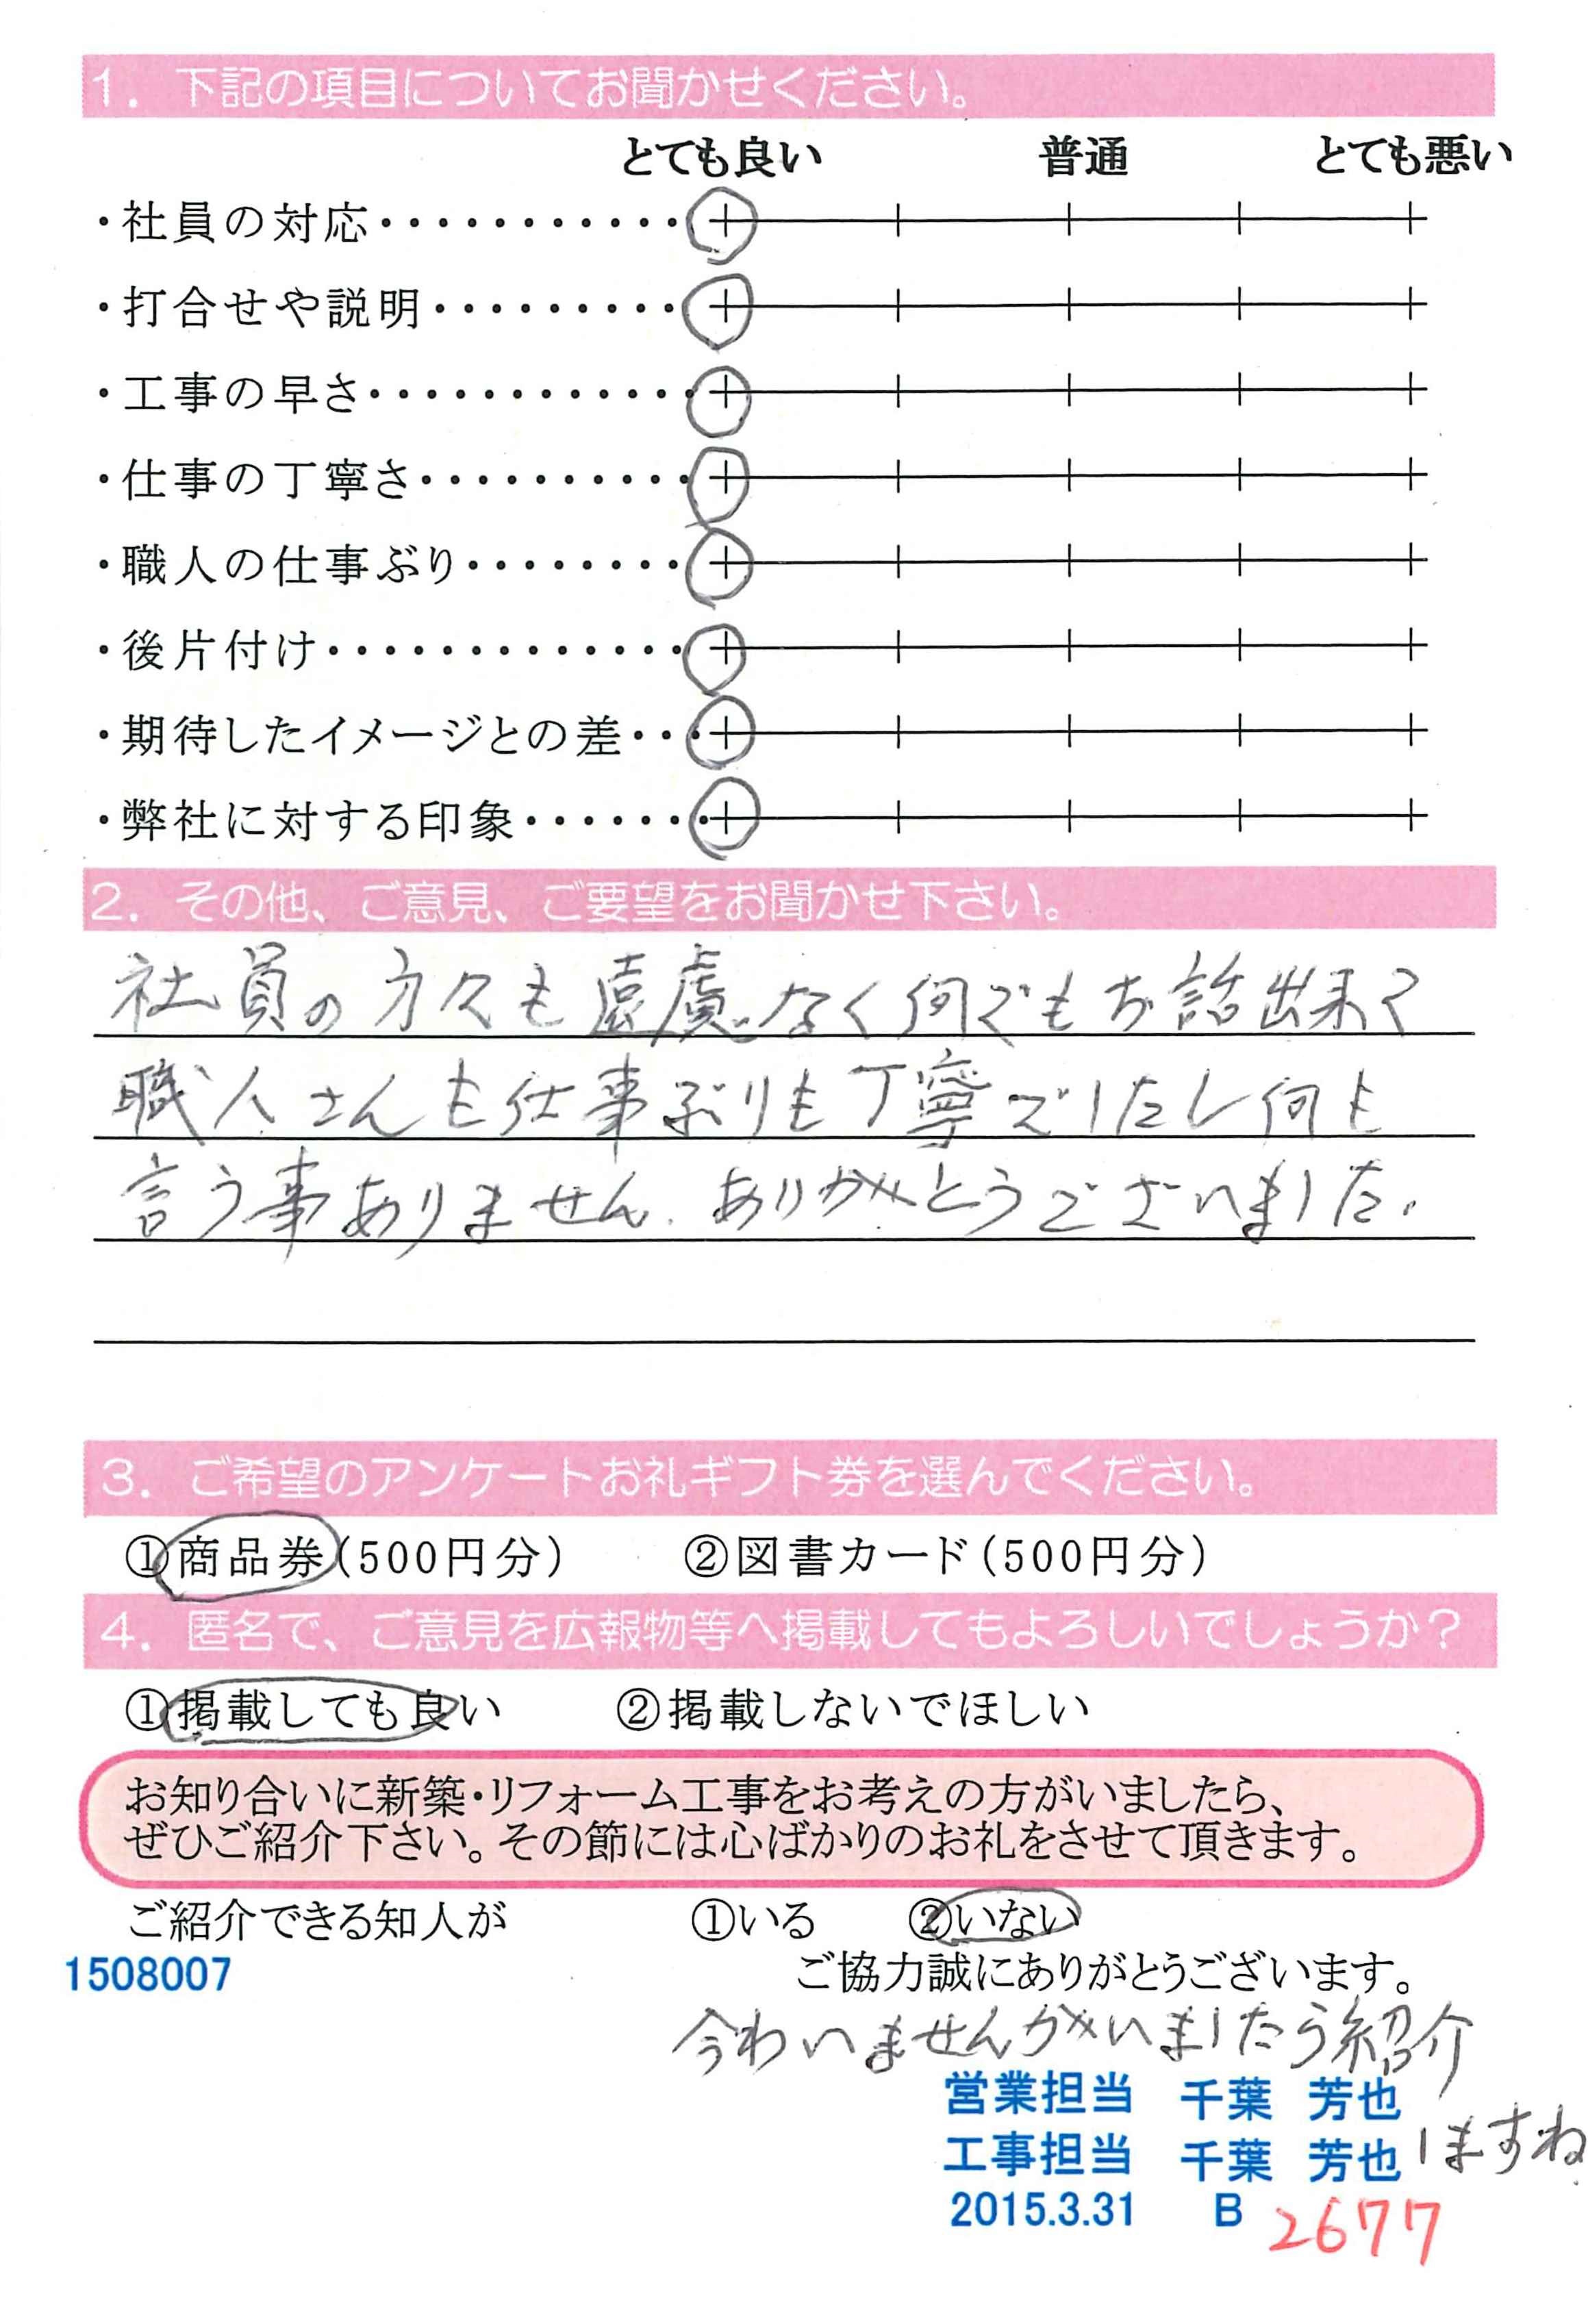 1. 下記の項目についてお聞かせください。
とても良い 普通 とても悪い
・社員の対応・・・・・・・・・・・
・打合せや説明・・・・・・・・・
・工事の早さ・・・・・・・・・・・・
・仕事の丁寧さ・・・・・・・・・・
・職人の仕事ぶり・・・・・・・・
・後片付け・・・・・・・・・・・・・
・期待したイメージとの差・・・
・弊社に対する印象・・・・・・・
2. その他、ご意見、ご要望をお聞かせ下さい。
社員の方々も遠慮なく何でもお話出来て
職人さんも仕事ぶりも丁寧でしたし何も
言う事ありません。ありがとうございました。
3. ご希望のアンケートお礼ギフト券を選んでください。
①商品券(500円分) ②図書カード(500円分)
4. 匿名で、ご意見を広報物等へ掲載してもよろしいでしょうか?
①掲載しても良い ②掲載しないでほしい
お知り合いに新築・リフォーム工事をお考えの方がいましたら、
ぜひご紹介下さい。その節には心ばかりのお礼をさせて頂きます。
ご紹介できる知人が ①いる ②いない
1508007 ご協力誠にありがとうございます。
今わいませんがいましたら紹介
営業担当 千葉 芳也
しますね
工事担当 千葉 芳也
2015.3.31 B 2677